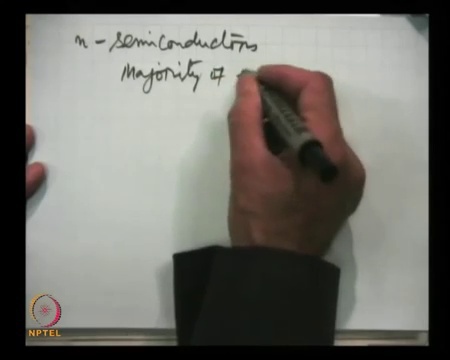 n - semiconductors
Majority of
NPTEL